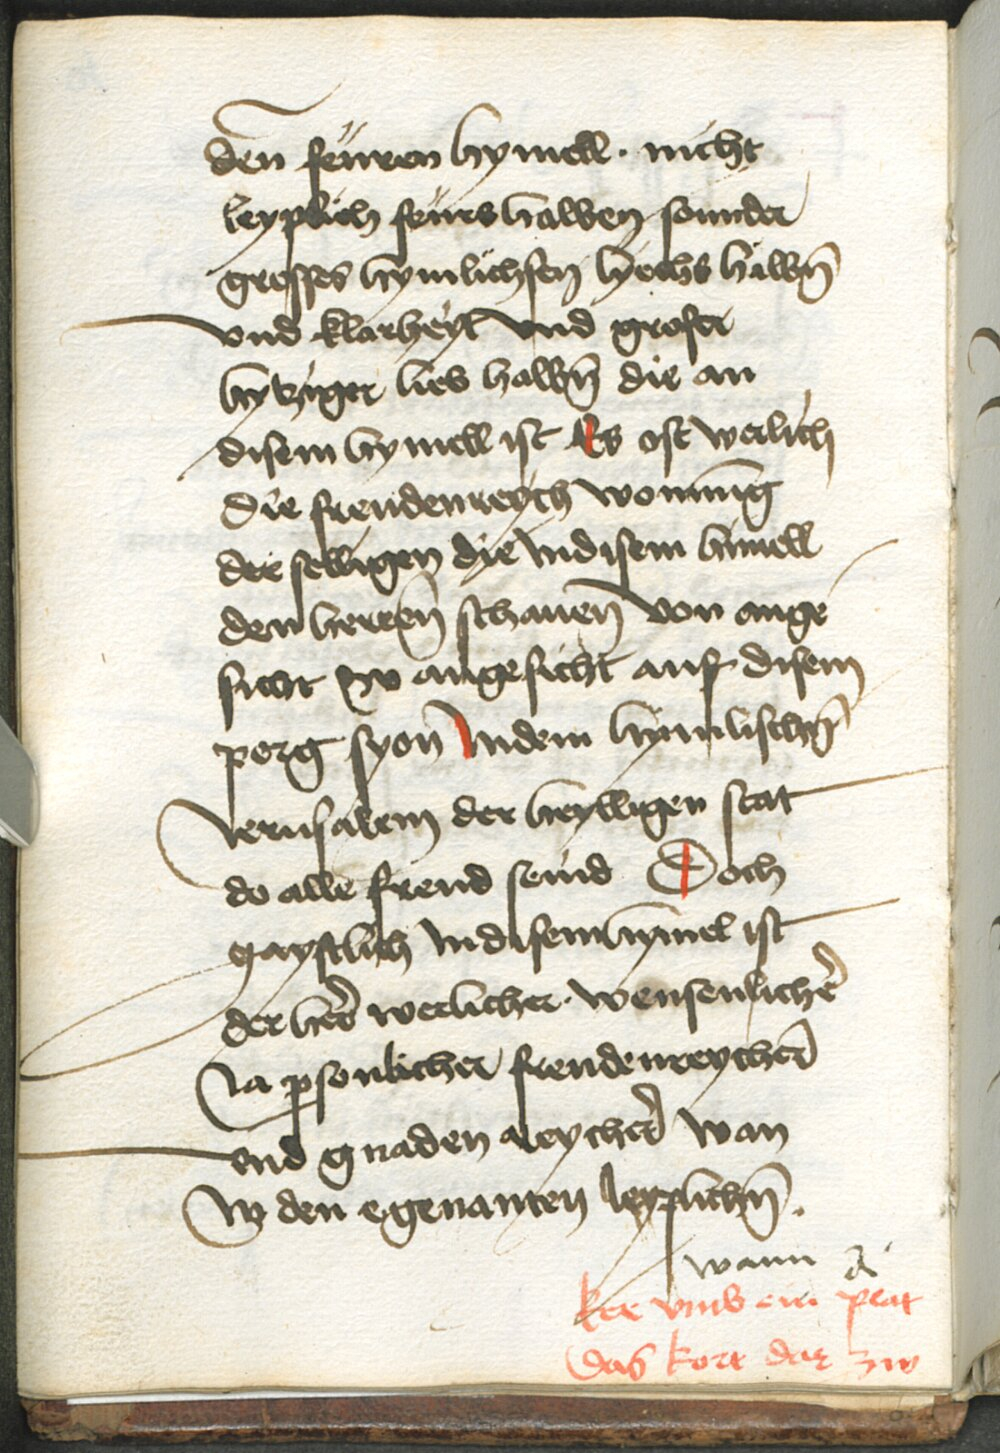 den feürren hymell · nicht
leyplich feürs halben sunnder
grosses hymlichsen lyechs halbn̄
vnd klarheyt vnd groser
hytziger lieb halbn̄ die an
disem hymell ist Es ist werlich
die freudenreych wonung
der selligen die Indisem himell
den herren̄ schauen von ange
sicht zw angesicht auf disem
perg syon Indem hymlischn̄
Ierusalem der heylligen stat
do alle freud seind Doch
gaystlich Indisem hymel ist
der her̄ werlicher · wensenlicher̄
Ia psonlicher freudenreycher
vnd gnaden reycher̄ wan
In den egenanten leyplichn̄ .
wann
ker vmb ein plat
das kort dar zw